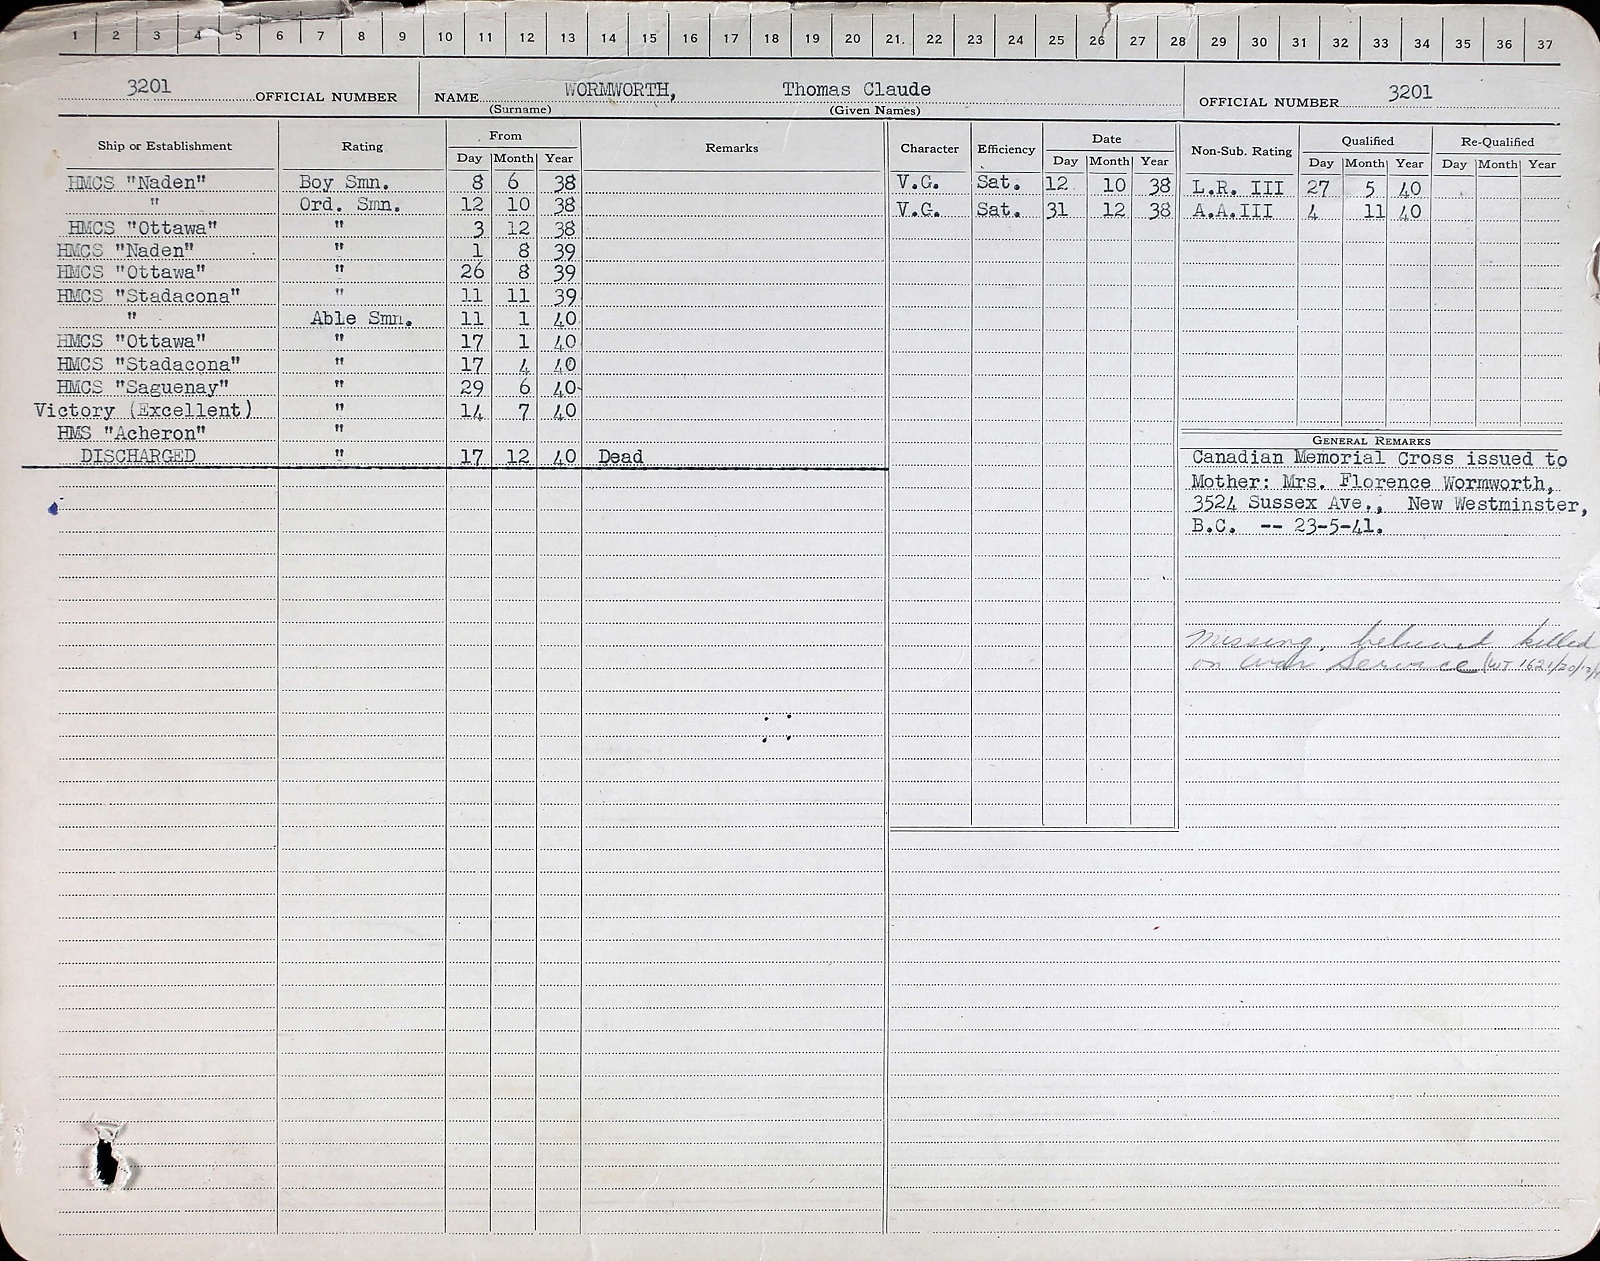 1 2 3 4 5 6 7 8 9 10 11 12 13 14 15 16 17 18 19 20 21. 22 23 24 25 26 27 28 29 30 31 32 33 34 35 36 37
3201 OFFICIAL NUMBER NAME WORMWORTH, Thomas Claude OFFICIAL NUMBER 3201
(Surname) (Given Names)
Ship or Establishment Rating From Remarks Character Efficiency Date Non-Sub. Rating Qualified Re-Qualified
Day Month Year Day Month Year Day Month Year Day Month Year
HMCS "Naden" Boy Smn. 8 6 38 V.G. Sat. 12 10 38 L.R. III 27 5 40
" Ord. Smn. 12 10 38 V.G. Sat. 31 12 38 A.A.III 4 11 40
HMCS "Ottawa" " 3 12 38
HMCS "Naden" " 1 8 39
HMCS "Ottawa" " 26 8 39
HMCS "Stadacona" " 11 11 39
" Able Smn. 11 1 40
HMCS "Ottawa" " 17 1 40
HMCS "Stadacona" " 17 4 40
HMCS "Saguenay" " 29 6 40
Victory (Excellent) " 14 7 40
HMS "Acheron" "
DISCHARGED " 17 12 40 Dead
GENERAL REMARKS
Canadian Memorial Cross issued to
Mother: Mrs. Florence Wormworth,
3524 Sussex Ave., New Westminster,
B.C. -- 23-5-41.
Missing, believed killed
on war service